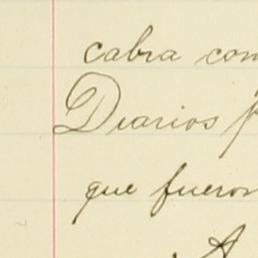 cabra com
Diarios p
que fueron
A